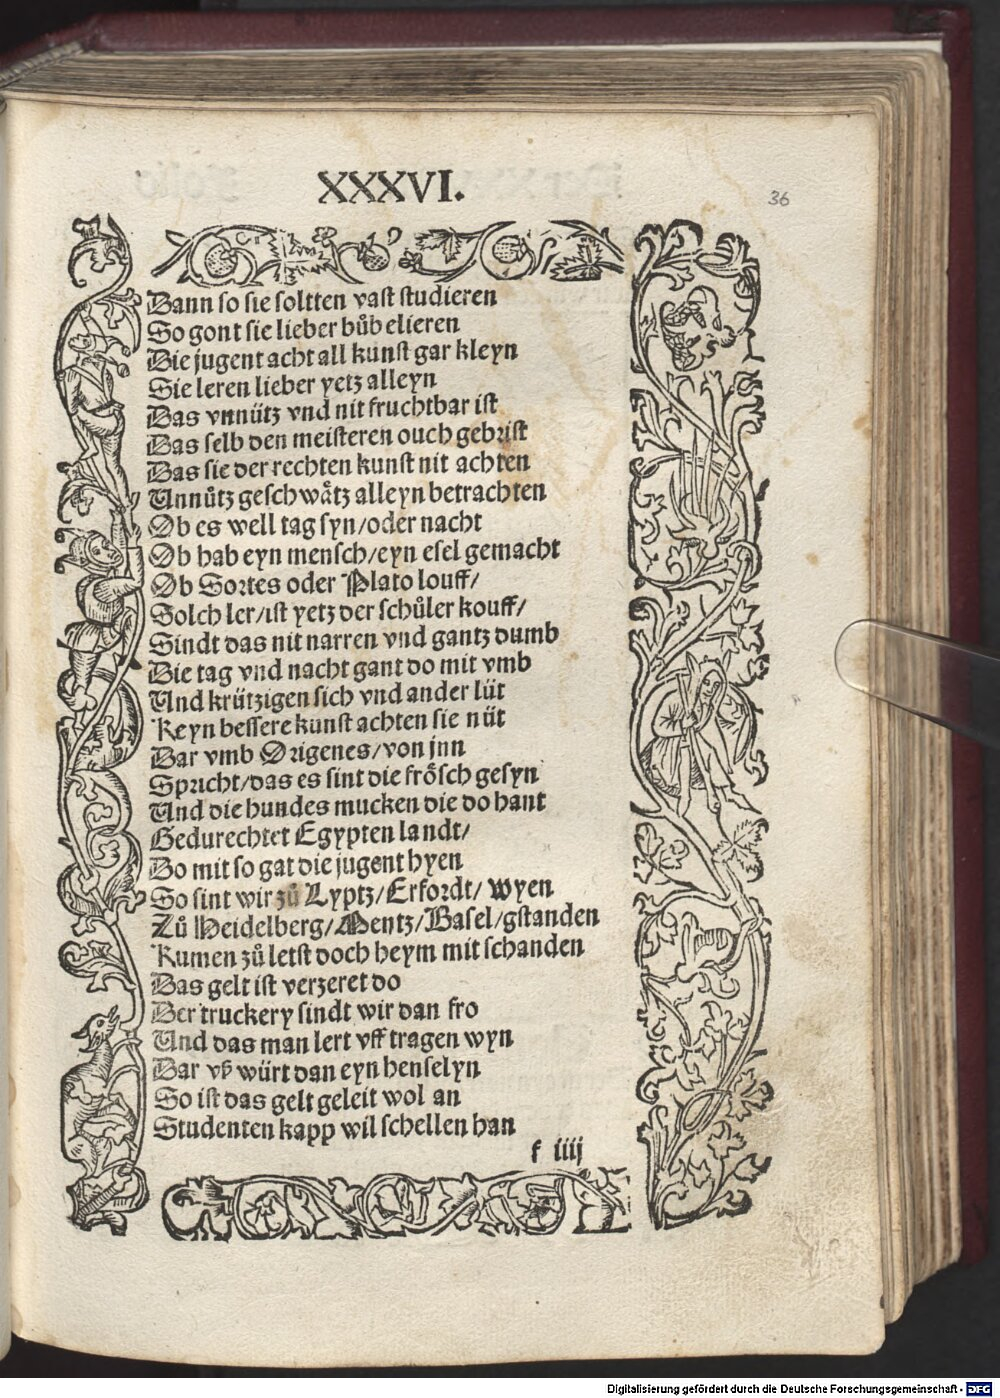 XXXVI.
36
Dann so sie soltten vast studieren
So gont sie lieber bůbelieren
Die jugent acht all kunst gar kleyn
Sie leren lieber yetz alleyn
Das vnnütz vnd nit fruchtbar ist
Das selb den meisteren ouch gebrist
Das sie der rechten kunst nit achten
Unnütz geschwätz alleyn betrachten
Ob es well tag syn/oder nacht
Ob hab eyn mensch/eyn esel gemacht
Ob Sortes oder Plato louff/
Solch ler/ist yetz der schůler kouff/
Sindt das nit narren vnd gantz dumb
Die tag vnd nacht gant do mit vmb
Und krützigen sich vnd ander lüt
Keyn bessere kunst achten sie nüt
Dar vmb Origenes/von jnn
Spricht/das es sint die frösch gesyn
Und die hundes mucken die do hant
Gedurechtet Egypten landt/
Do mit so gat die jugent hyen
So sint wir zů Lyptz/Erfordt/wyen
Zů Heidelberg/Mentz/Basel/gstanden
Kumen zů letst doch heym mit schanden
Das gelt ist verzeret do
Der truckery sindt wir dan fro
Und das man lert vff tragen wyn
Dar vß würt dan eyn henselyn
So ist das gelt geleit wol an
Studenten kapp wil schellen han
f iiij
Digitalisierung gefördert durch die Deutsche Forschungsgemeinschaft - DFG